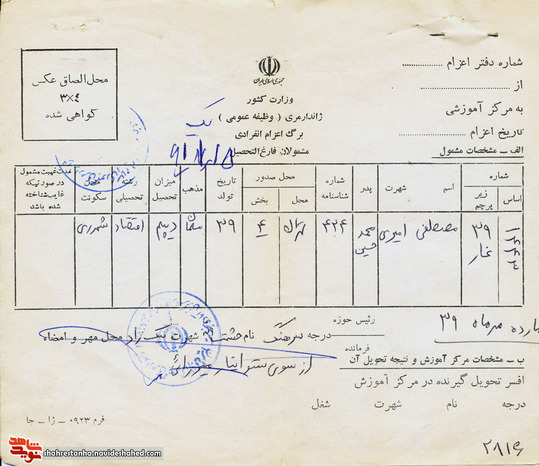 شماره دفتر اعزام
از
به مرکز آموزشی
تاریخ اعزام
الف ـ مشخصات مشمول
جمهوری اسلامی ایران
وزارت کشور
ژاندارمری ( وظیفه عمومی )
برگ اعزام انفرادی
مشمولان فارغ التحصیل
محل الصاق عکس
۳×۴
گواهی شده
شماره
اساس
زیر پرچم
اسم
شهرت
پدر
شماره شناسنامه
محل صدور
محل
بخش
تاریخ تولد
مذهب
میزان تحصیل
رشته تحصیلی
محل سکونت
مدت غیبت مشمول در صورتیکه غایب شناخته شده باشد
۳۹
مصطفی
امیری
محمد حسین
۴۲۴
تهران
۴
۳۹
دیپلم
اقتصاد
شهرری
مهرماه ۳۹
رئیس حوزه
فرمانده
درجه سرهنگ نام حشمت شهرت نیک راد محل مهر و امضاء
ب ـ مشخصات مرکز آموزش و نتیجه تحویل آن
از سوی
افسر تحویل گیرنده در مرکز آموزش
درجه نام شهرت شغل
فرم ۰۹۲۳ ـ ژا ـ جا
شاهد
نوید
shahrestanha.navideshahed.com